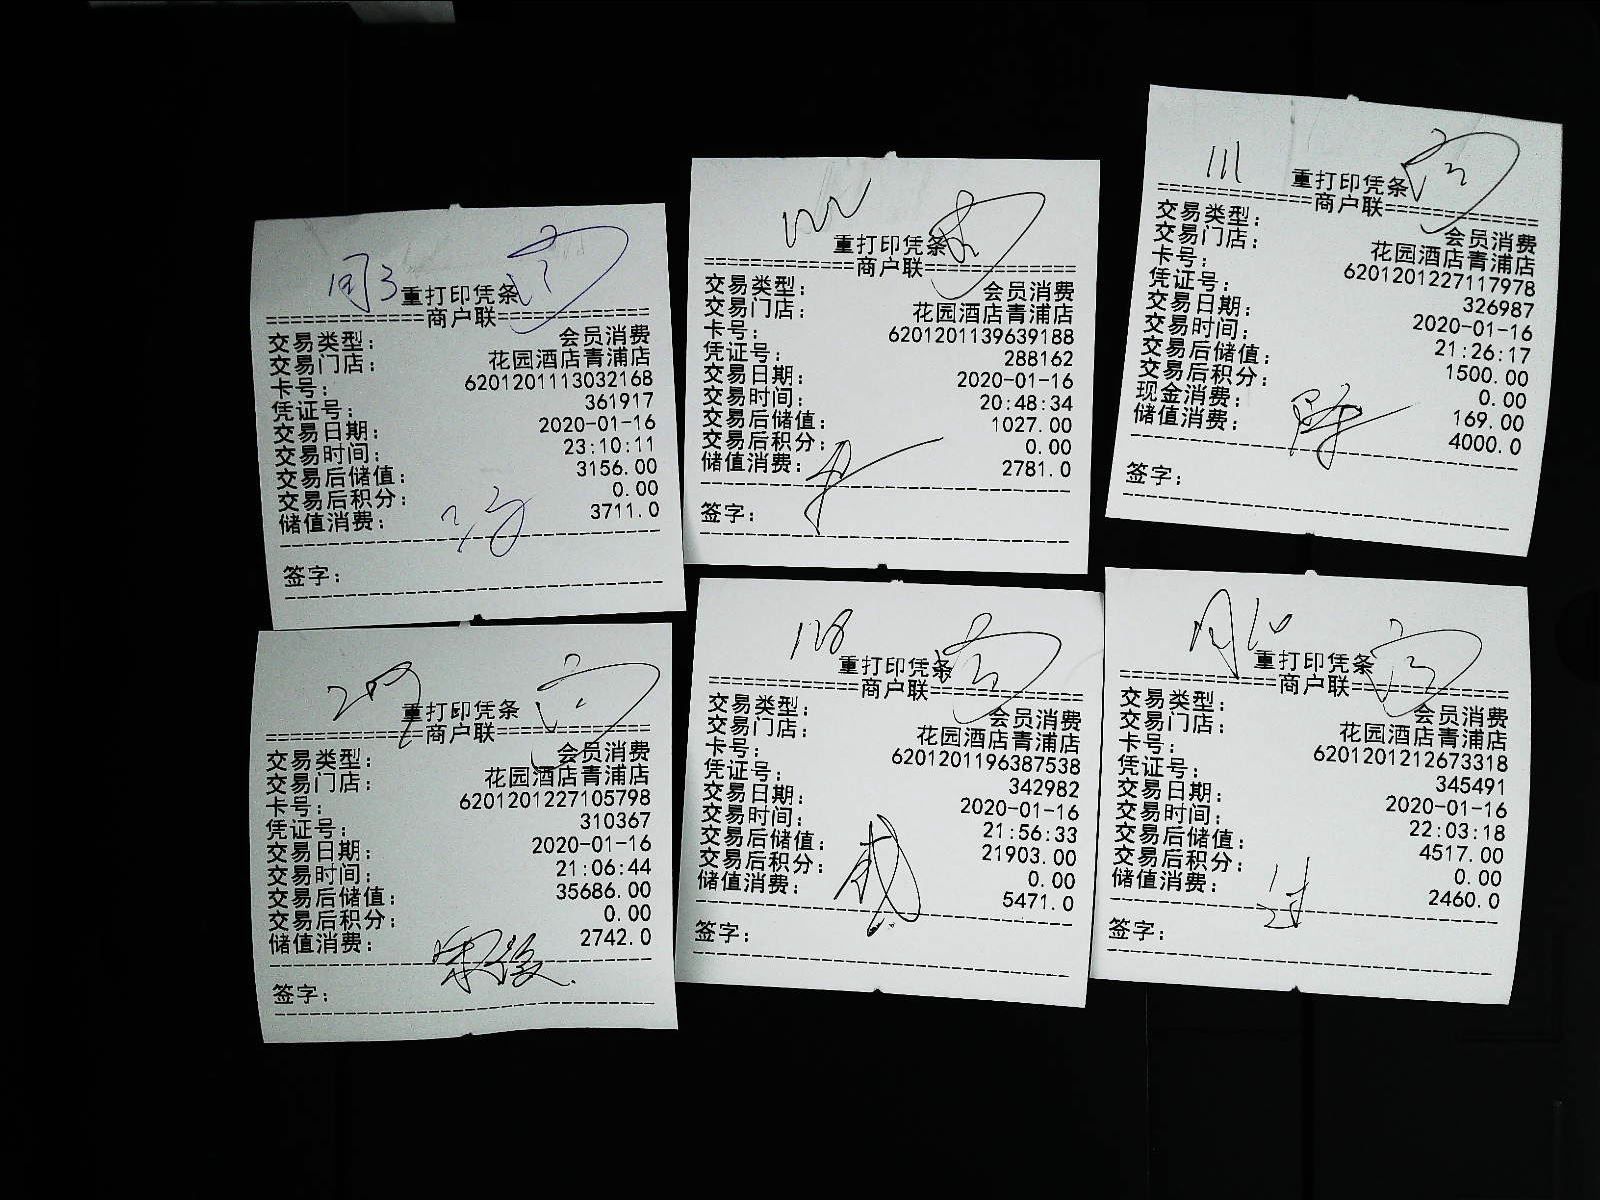 周3
重打印凭条
==============商户联==============
交易类型: 会员消费
交易门店: 花园酒店青浦店
卡号: 6201201113032168
凭证号: 361917
交易日期: 2020-01-16
交易时间: 23:10:11
交易后储值: 3156.00
交易后积分: 0.00
储值消费: 3711.0
签字:
重打印凭条
==============商户联==============
交易类型: 会员消费
交易门店: 花园酒店青浦店
卡号: 6201201139639188
凭证号: 288162
交易日期: 2020-01-16
交易时间: 20:48:34
交易后储值: 1027.00
交易后积分: 0.00
储值消费: 2781.0
签字:
111
重打印凭条
==============商户联==============
交易类型: 会员消费
交易门店: 花园酒店青浦店
卡号: 6201201227117978
凭证号: 326987
交易日期: 2020-01-16
交易时间: 21:26:17
交易后储值: 1500.00
交易后积分: 0.00
现金消费: 169.00
储值消费: 4000.0
签字:
重打印凭条
==============商户联==============
交易类型: 会员消费
交易门店: 花园酒店青浦店
卡号: 6201201227105798
凭证号: 310367
交易日期: 2020-01-16
交易时间: 21:06:44
交易后储值: 35686.00
交易后积分: 0.00
储值消费: 2742.0
签字:
128
重打印凭条
==============商户联==============
交易类型: 会员消费
交易门店: 花园酒店青浦店
卡号: 6201201196387538
凭证号: 342982
交易日期: 2020-01-16
交易时间: 21:56:33
交易后储值: 21903.00
交易后积分: 0.00
储值消费: 5471.0
签字:
重打印凭条
==============商户联==============
交易类型: 会员消费
交易门店: 花园酒店青浦店
卡号: 6201201212673318
凭证号: 345491
交易日期: 2020-01-16
交易时间: 22:03:18
交易后储值: 4517.00
交易后积分: 0.00
储值消费: 2460.0
签字: